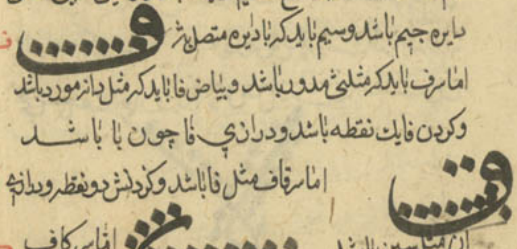 دایره جیم باشد و سیم باید که با دایره متصل
ف
اما سر ف باید که مثلثی مدور باشد و بیاض فا باید که مثل دانه مورد باشد
و کردن فا یک نقطه باشد و درازی فا چون با باشد
اما سر قاف مثل فا باشد و کردنش دو نقطه و درازی
ق
اما سر کاف